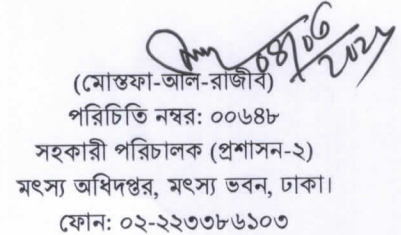 04/06/2024
(মোস্তফা-আল-রাজীব)
পরিচিতি নম্বর: ০০৬৪৮
সহকারী পরিচালক (প্রশাসন-২)
মৎস্য অধিদপ্তর, মৎস্য ভবন, ঢাকা।
ফোন: ০২-২২৩৩৮৬১০৩